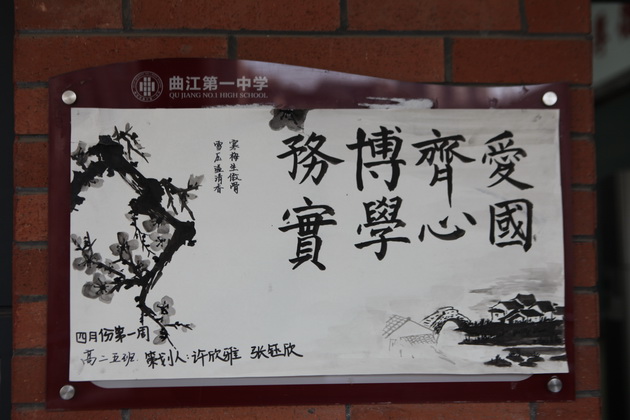 曲江第一中学
QU JIANG NO.1 HIGH SCHOOL
愛國
齊心
博學
務實
寒梅生傲骨
雪盂溢清香
四月份第一周
高二五班 策划人:许欣雅 张钰欣